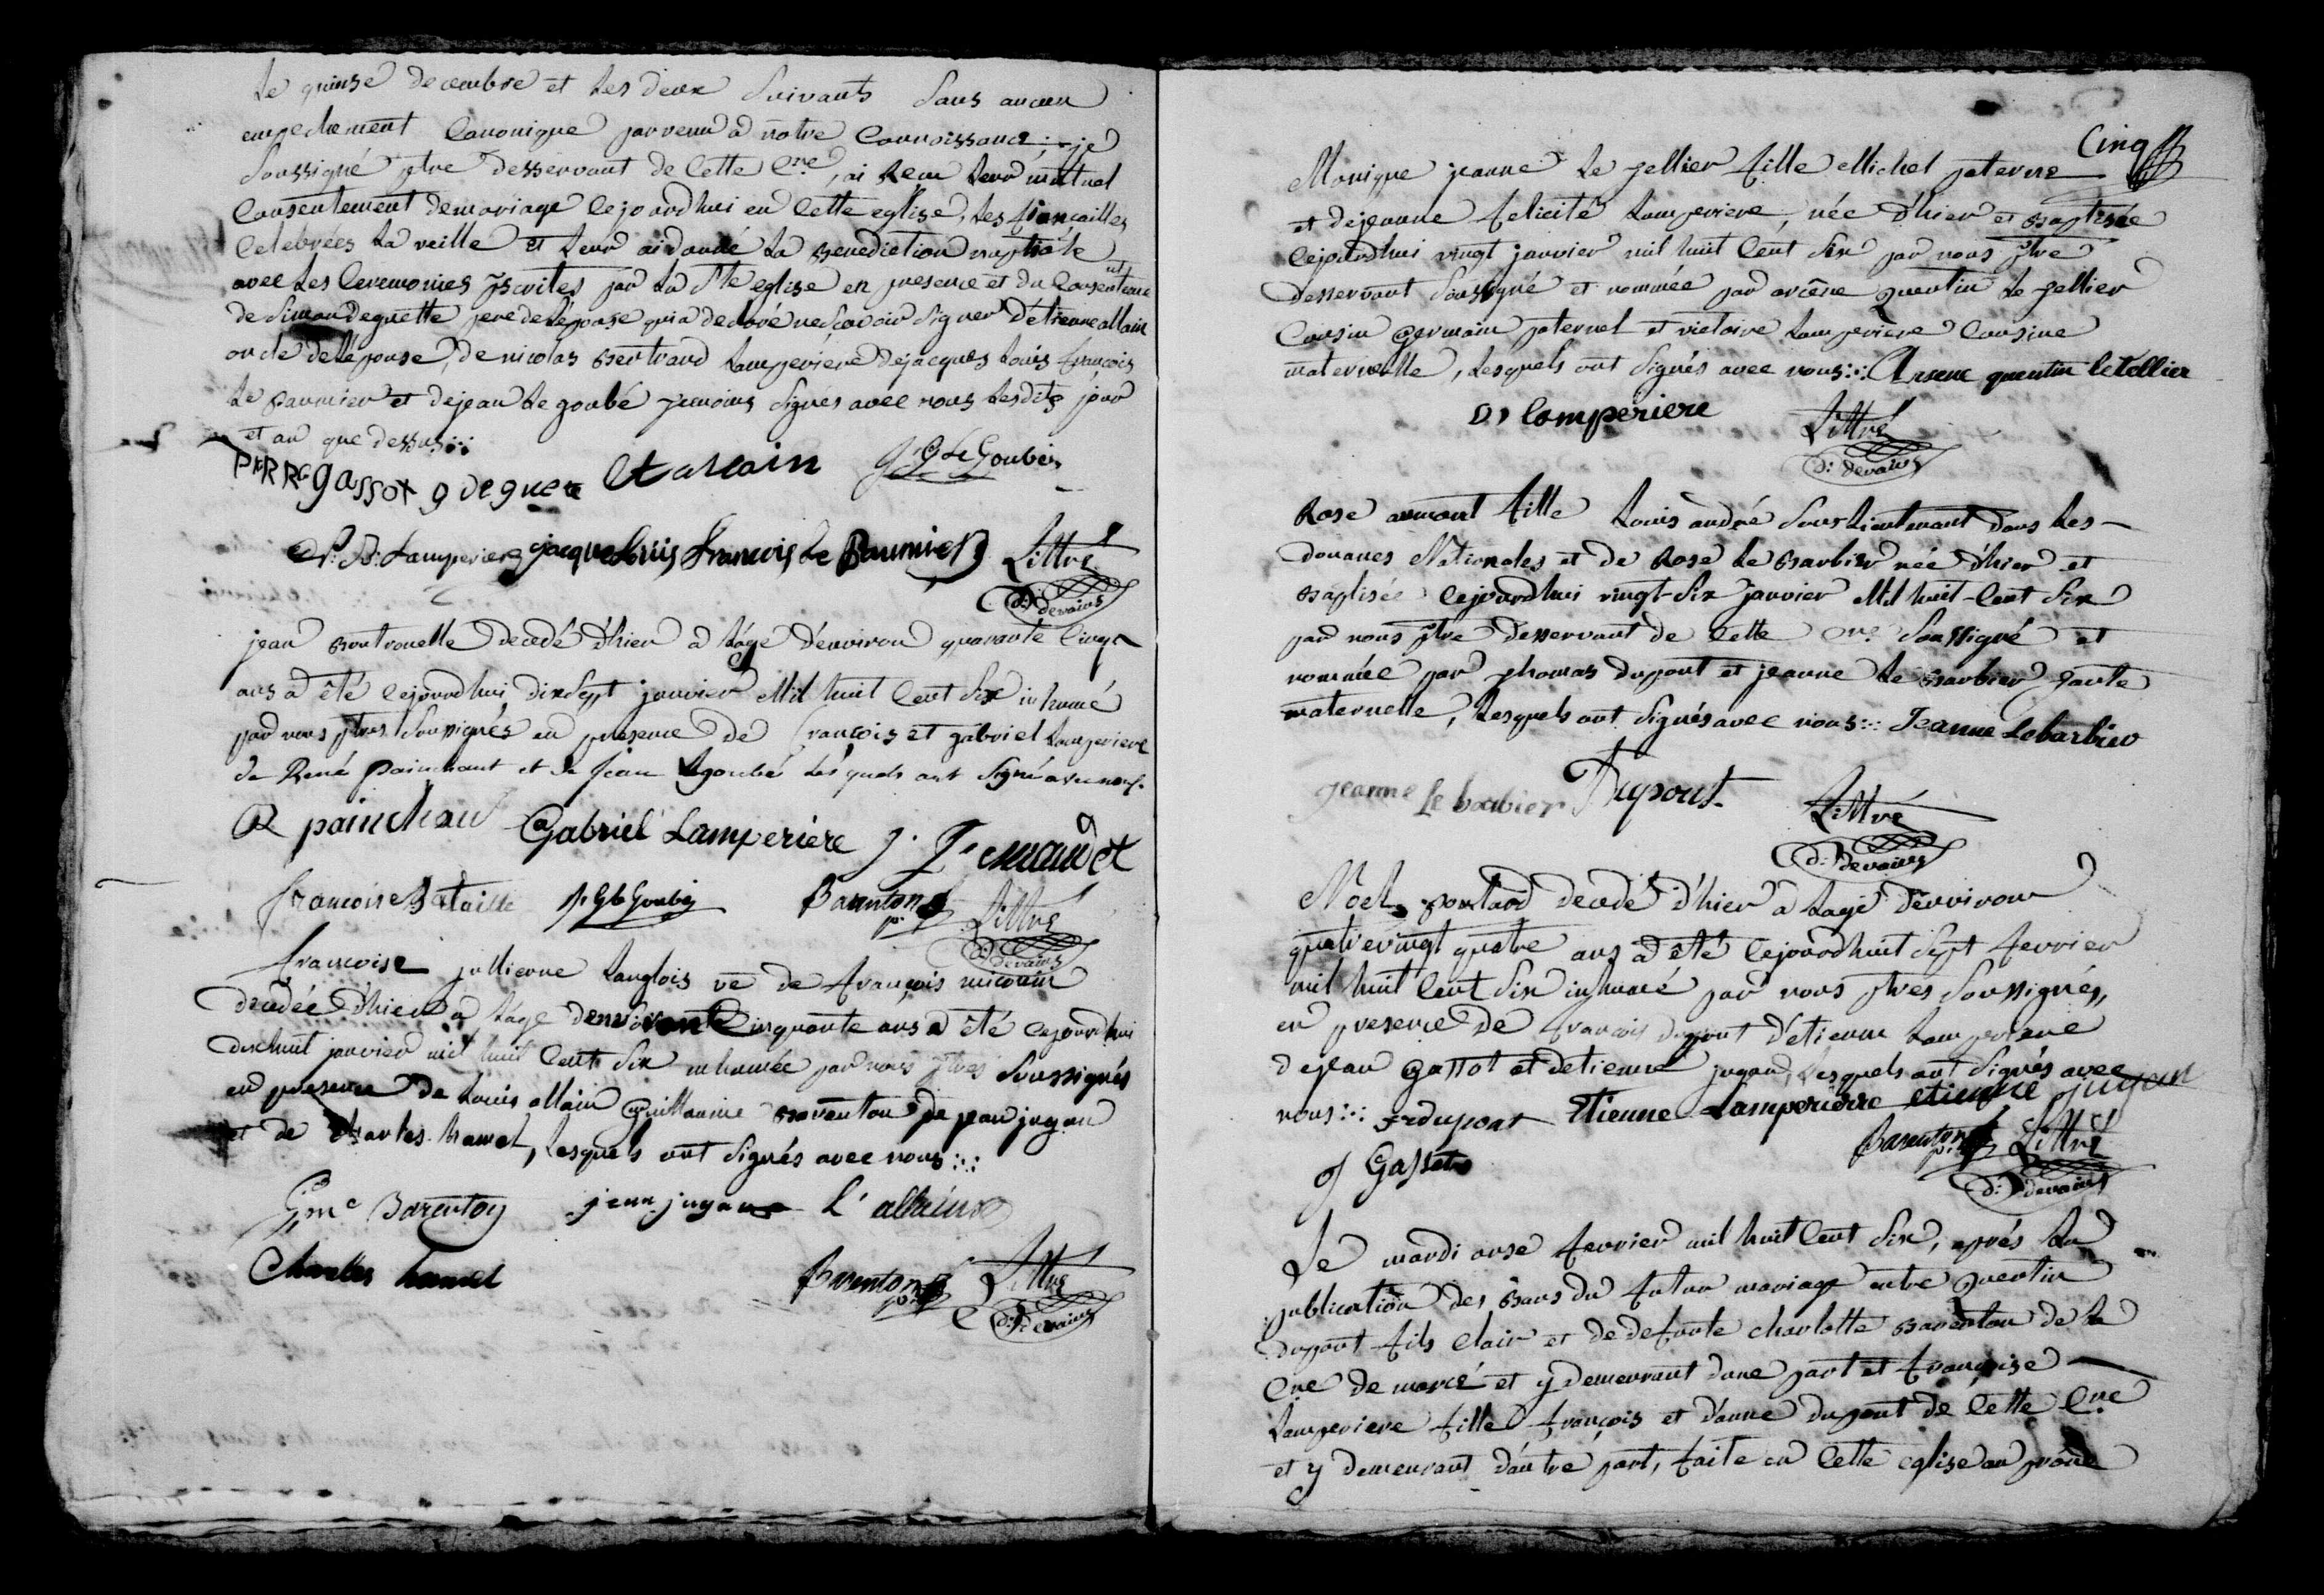 Le quinse decembre et les deux Suivants Sans aucun
empechement Canonique parvenu à notre Connoissance; je
Soussigné ptre desservant de Cette Cne, ai Reçu leur mutuel
Consentement de mariage Cejourdhui en Cette eglise, les fiançailles
Celebrées la veille et leur ai donné la Benediction nuptiale
avec les Ceremonies pscrites par la Ste eglise en presence et du Consentemt
de Simeon deguette pere de lépouse qui a declaré ne Scavoir Signer d'étienne allain
oncle de lépouse, de nicolas Bertrand Lamperiere de jacques Louis françois
Le Paumier et de jean Le goubé temoins Signés avec nous lesdits jour
et an que dessus
PIERRE gassot g deguete Et allain J G Le Goubey
N: B: Lamperiere jacque Louis francois Le Paumier Littré
d: devains
jean Boutrouelle decedé d'hier a l'âge d'environ quarante Cinq
ans a été Cejourdhui dix Sept janvier Mil huit Cent Six inhumé
par nous ptres Soussignés en presence de François et gabriel Lamperiere
de René Painchaut et de Jean Legoubé lesquels ont Signé avec nous.
R painchaut Gabriel Lamperiere
J G le Goubey Barenton Littré
d: devains
françoise jullienne Langlois ve de françois
decedée d'hier a l'âge denviron Cinquante ans a été Cejourdhui
dix huit janvier mil huit Cent Six inhumée par nous ptres Soussignés
en presence de Louis allain Guillaume Barenton de jean jugan
et de Charles hamel, lesquels ont Signés avec nous
Gme Barenton jean jugan L' allain
Charles hamel Barenton Littré
d: devains
Cinq
Monique jeanne Le tellier fille Michel paterne
et de jeanne felicité Lamperiere, née d'hier et Baptisée
Cejourdhui vingt janvier mil huit Cent Six par nous ptre
desservant Soussigné et nommée par arcêne Quentin Le tellier
Cousin Germain paternel et victoire Lamperiere Cousine
maternelle, lesquels ont Signés avec nous Arsene quentin letellier
V lamperiere Littré
d: devains
Rose aumont fille Louis andré Sous Lieutenant dans les
douanes Nationales et de Rose Le Barbier née d'hier et
Baptisée Cejourdhui vingt-Six janvier Mil huit-Cent Six
par nous ptre desservant de Cette Cne Soussigné et
nommée par thomas dupont et jeanne Le Barbier tante
maternelle, lesquels ont Signés avec nous Jeanne Lebarbier
jeanne le barbier Dupont Littré
d: devains
Nöel decedé d'hier a l'age d'environ
quatrevingt quatre ans a été Cejourdhuit Sept fevrier
mil huit Cent Six inhumé par nous ptres Soussignés,
en presence de francois dupont d'etienne Lamperiere
de jean Gassot et detienne jugan, lesquels ont Signés avec
nous frdupont Etienne Lamperierre etienne jugan
J Gassot Barenton Littré
d: devains
Le mardi onse fevrier mil huit Cent Six, après la
publication des Bans du futur mariage entre Quentin
dupont fils Clair et de defunte charlotte Barenton de la
Cne de et y demeurant dune part et françoise
Lamperiere fille françois et d'anne dupont de Cette Cne
et y demeurant d'autre part, faite en Cette eglise au prône